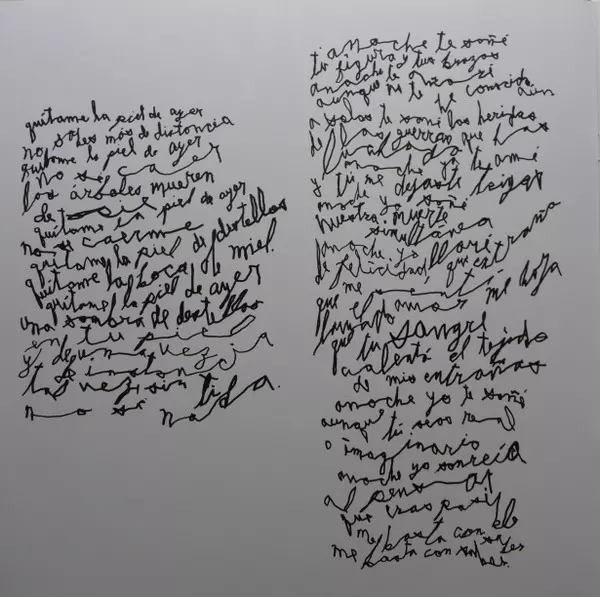 quítame la piel de ayer
no sabes más de distancia
quítame la piel de ayer
no sé caer
los árboles mueren
de pie
quítame la piel de ayer
no sé caerme
quítame la piel de destellos
quítame la boca de miel.
quítame la piel de ayer
una sombra de destellos
en tu piel
y de una vez
distancia
tal vez, sin ti
no sé nada.
anoche te soñé
tu figura y tus brazos
anoche te
aunque no te he conocido aún
a solas te soñé las heridas
de las guerras que has
luchado
y anoche yo te amé
y tú me dejaste
anoche yo soñé
nuestra muerte
simultánea
anoche yo lloré
de felicidad, qué extraña
me sentí
que el amor me haya
llenado
que tu sangre
calentó el tejado
de mis entrañas
anoche yo te soñé
aunque tú seas real
o imaginario
anoche yo sonreía
al pensar
que eras
me basta con
me basta con